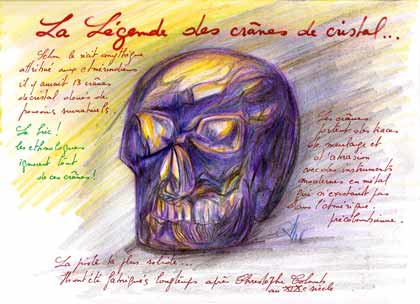 La Légende des crânes de cristal...
Selon le récit mythique
attribué aux Amérindiens
il y aurait 13 crânes
de cristal doués de
pouvoirs surnaturels.
Le hic !
les ethnologues
ignorent tout
de ces crânes !
Les crânes
portent des traces
de meulage et
d'abrasion
avec des instruments
modernes en métal
qui n'existaient pas
dans l'Amérique
précolombienne.
La piste la plus solide...
Ils ont été fabriqués longtemps après Christophe Colomb
au XIXe siècle